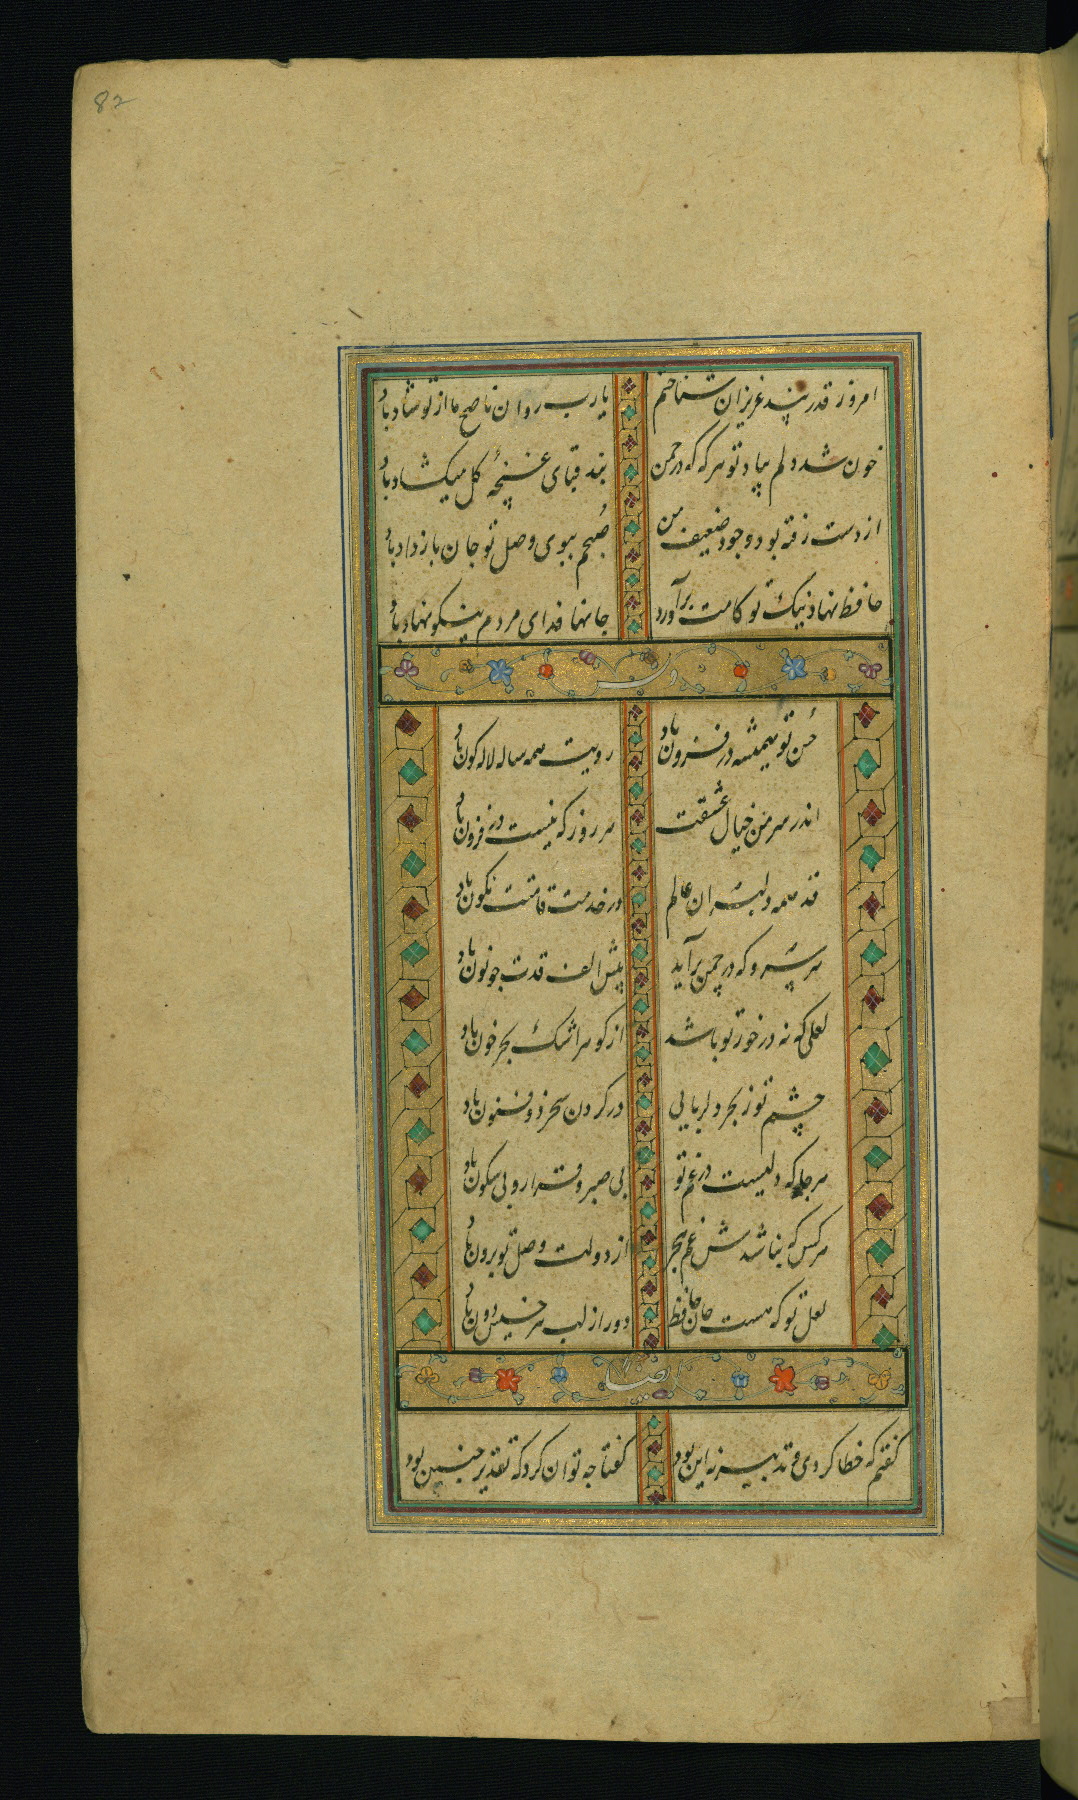 82
امروز قدر پند عزیزان شناختم یارب روان ناصح ما از تو شاد باد
خون شد دلم بیاد تو هر که که در چمن بند قبای غنچهٔ کل میکشاد باد
از دست رفته بود وجود ضعیف من صبحم ببوی وصل تو جان باز داد باد
حافظ نهاد نیک تو کامت برآورد جانها فدای مردم نیکو نهاد باد
حُسن تو همیشه در فزون باد رویت همه ساله لاله کون باد
اندر سر من خیال عشقت هر روز که نیست در فزون باد
قد همه دلبران عالم در خدمت قامتت نکون باد
هر سرو که در چمن برآید پیش الف قدت چو نون باد
لعلی که نه در خور تو باشد از کوهر اشک بحر خون باد
چشم تو ز بحر دلربایی در کردن سحر ذوفنون باد
هر جا که دلیست در غم تو بی صبر و قرار و بی سکون باد
هر کس که نباشدش غم هجر از دولت وصل تو برون باد
لعل تو که هست جان حافظ دور از لب هر خسیس دون باد
ایضا
کفتم که خطا کردی و تدبیر نه این بود کفتا چه توان کرد که تقدیر چنین بود